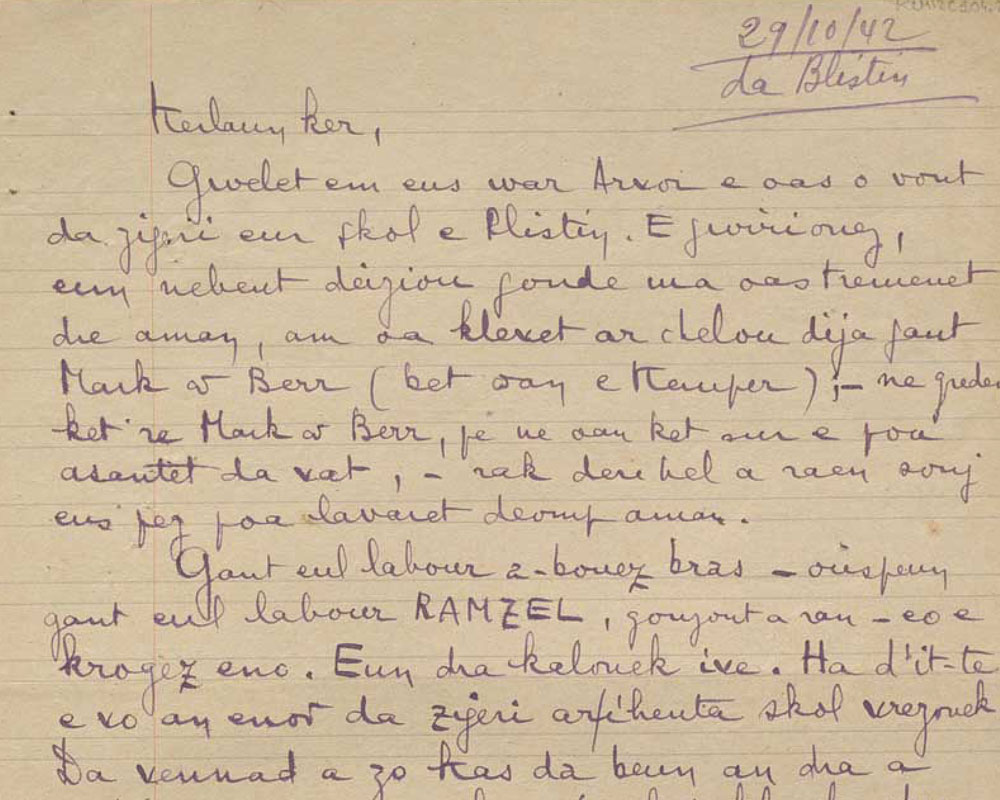 29/10/42
da Blistin
Kerlann ker,
Gwelet em eus war Arvor e oas o vont
da zigeri eur skol e Plistin. E gwirionez,
eun nebeut deiziou goude ma oas tremenet
dre aman, am oa klevet ar chelou dija gant
Mark ar Berr (bet oan e Kemper) ;- ne greden
ket 're Mark ar Berr, pe ne oan ket sur e poa
asantet da vat, - rak derc'hel a raen sonj
eus pez poa lavaret deomp aman.
Gant eul labour a-bouez bras - ouspenn
gant eul labour RAMZEL, gouzout a ran - eo e
krogez eno. Eun dra kalonek ive. Ha d'it-te
e vo an enor da zigeri ar c'henta skol vrezonek
Da vennad a zo kas da benn an dra a